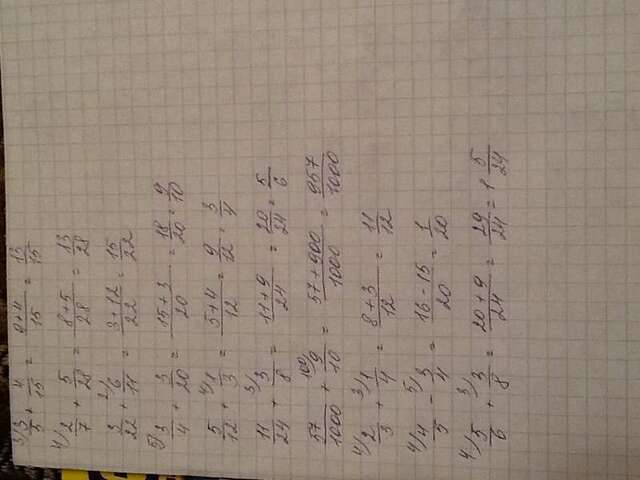 3/ 3/5 + 4/15 = 9+4/15 = 13/15
4/ 2/7 + 5/28 = 8+5/28 = 13/28
3/22 + 2/ 6/11 = 3+12/22 = 15/22
5/ 3/4 + 3/20 = 15+3/20 = 18/20 = 9/10
5/12 + 4/ 1/3 = 5+4/12 = 9/12 = 3/4
11/24 + 3/ 3/8 = 11+9/24 = 20/24 = 5/6
57/1000 + 100/ 9/10 = 57+900/1000 = 957/1000
4/ 2/3 + 3/ 1/4 = 8+3/12 = 11/12
4/ 4/5 - 5/ 3/4 = 16-15/20 = 1/20
4/ 5/6 + 3/ 3/8 = 20+9/24 = 29/24 = 1 5/24